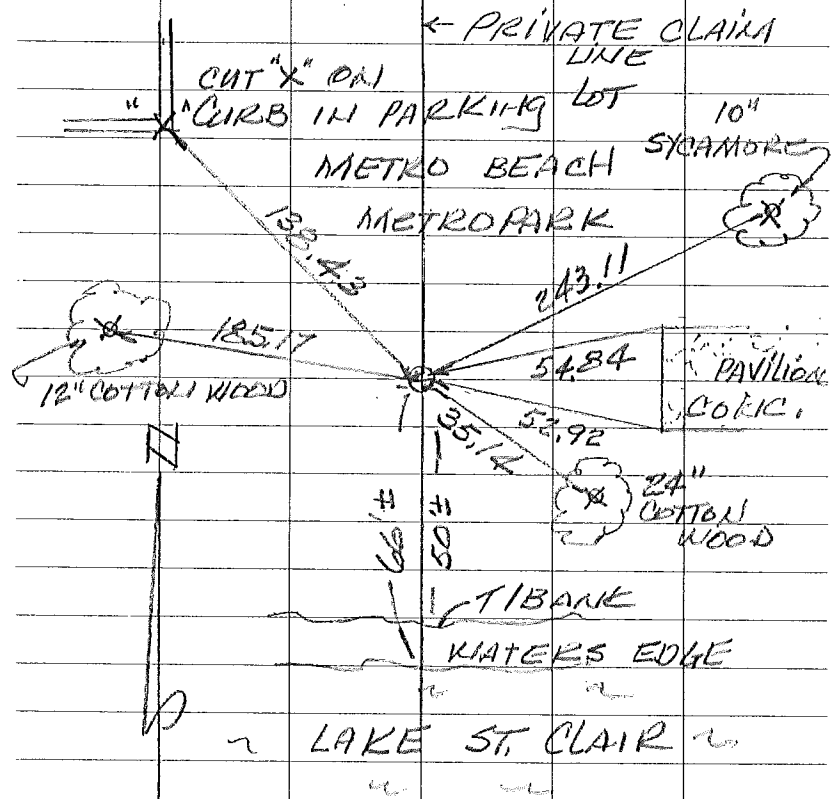 ← PRIVATE CLAIM
LINE
CUT "X" ON
CURB IN PARKING LOT
10"
SYCAMORE
METRO BEACH
METROPARK
138.43
243.11
185.17
54.84
PAVILION
CONC.
12" COTTONWOOD
35.14
52.92
24"
COTTON
WOOD
66'±
50'±
T/BANK
WATERS EDGE
LAKE ST. CLAIR